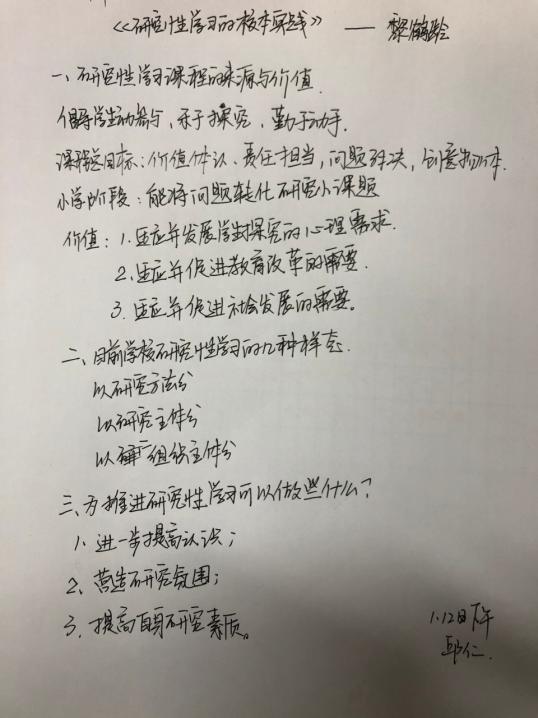 《研究性学习的校本实践》 —— 黎鹤龄
一、研究性学习课程的来源与价值
倡导学生主动参与，乐于探究，勤于动手。
课程总目标：价值体认、责任担当，问题解决，创意物化。
小学阶段：能将问题转化研究小课题
价值：1. 适应并发展学生探究的心理需求。
2. 适应并促进教育改革的需要。
3. 适应并促进社会发展的需要。
二、目前学校研究性学习的几种样态
以研究方法分
以研究主体分
以 组织主体分
三、为推进研究性学习可以做些什么？
1. 进一步提高认识；
2、营造研究氛围；
3. 提高自身研究素质。
1.12日下午
邱仁